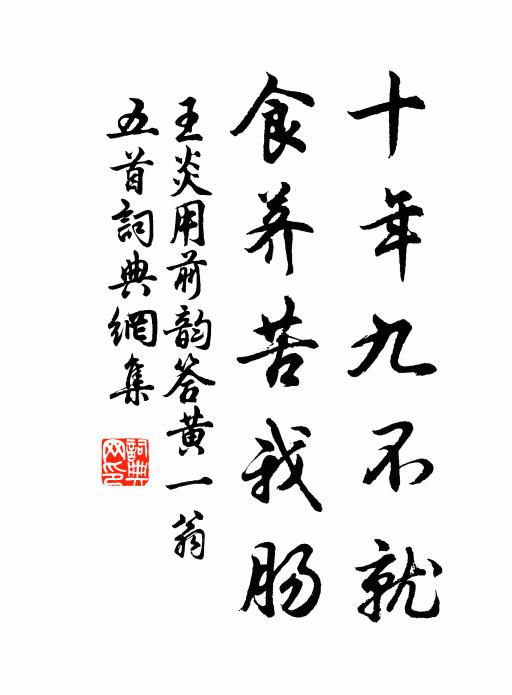 十年九不就
食荠苦我肠
王炎用前韵答黄一翁
五首詞典網集
詞典網印